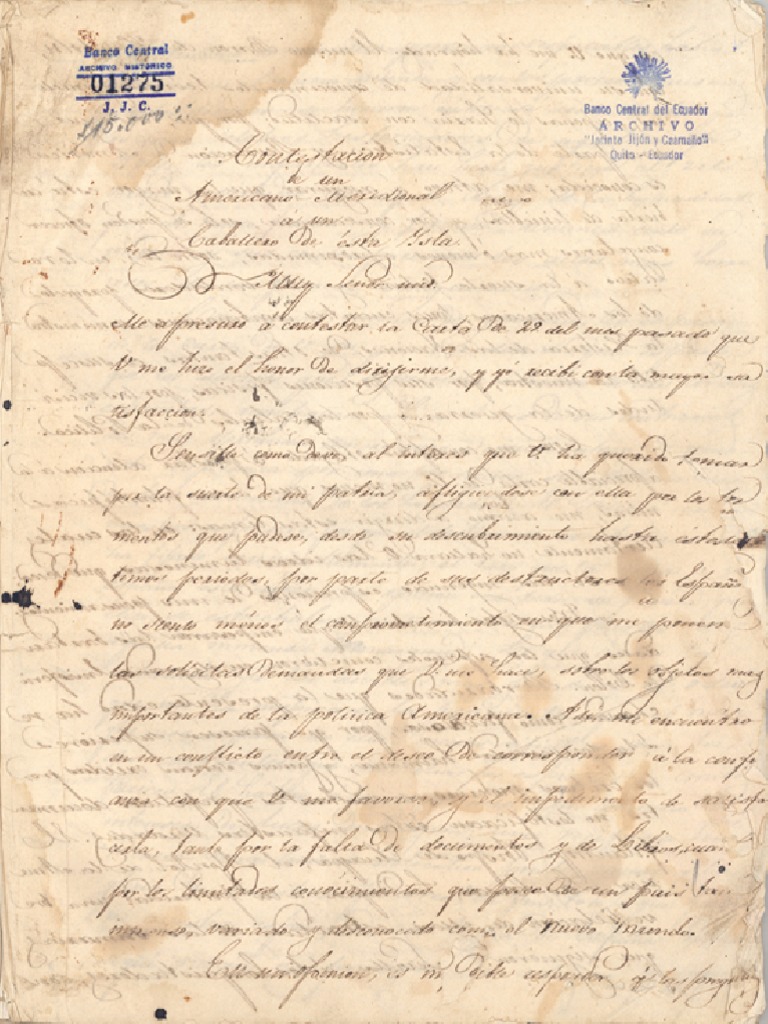 Banco Central
ARCHIVO HISTÓRICO
01275
J. J. C.
$15.000
Banco Central del Ecuador
ARCHIVO
"Jacinto Jijón y Caamaño"
Quito - Ecuador
Contestacion
de un
Americano Meridional
á un
Caballero de ésta Ysla.
Muy Señor mio
Me apresuro á contestar la Carta de 29 del mes pasado que
V me hizo el honor de dirijirme, y yó recibí con la mayor sa
tisfaccion.
Sensible como devo, al interes que V. ha querido tomar
por la suerte de mi patria, afligiendose con ella por los tor
mentos que padece, desde su descubrimiento hasta estos úl
timos periodos, por parte de sus destructores los Españo
no siento ménos el comprometimiento en que me ponen
las solicitas demandas que V. me hace, sobre los objetos mas
importantes de la politica Americana. Asi, me encuentro
en un conflicto entre el deseo de corresponder á la confi
anza con que V me favorece, y el impedimento de satisfa
cerla, tanto por la falta de documentos y de Libros, cuan
por los limitados conocimientos que poseo de un pais tan
inmenso, variado y desconocido como el Nuevo Mundo.
En mi opinion, es